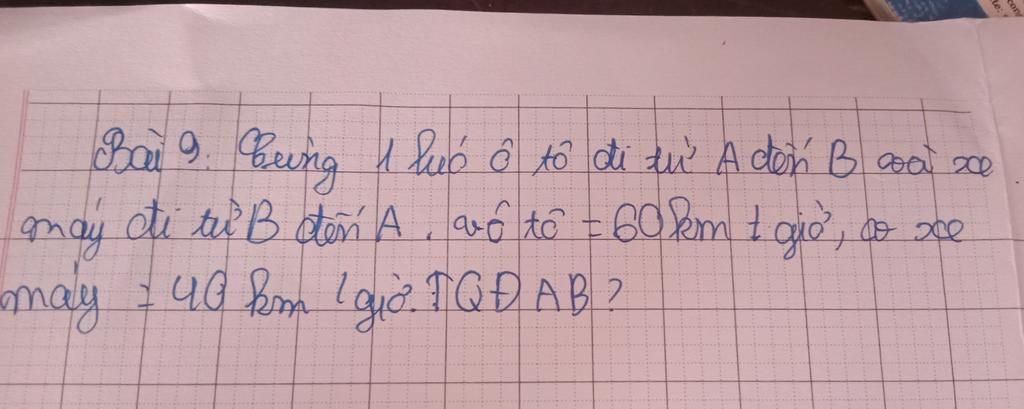 Bài 9. Cùng 1 lúc ô tô đi từ A đến B và xe
máy đi từ B đến A. v ô tô = 60 km / giờ, v xe
máy = 40 km / giờ. TQĐ AB?